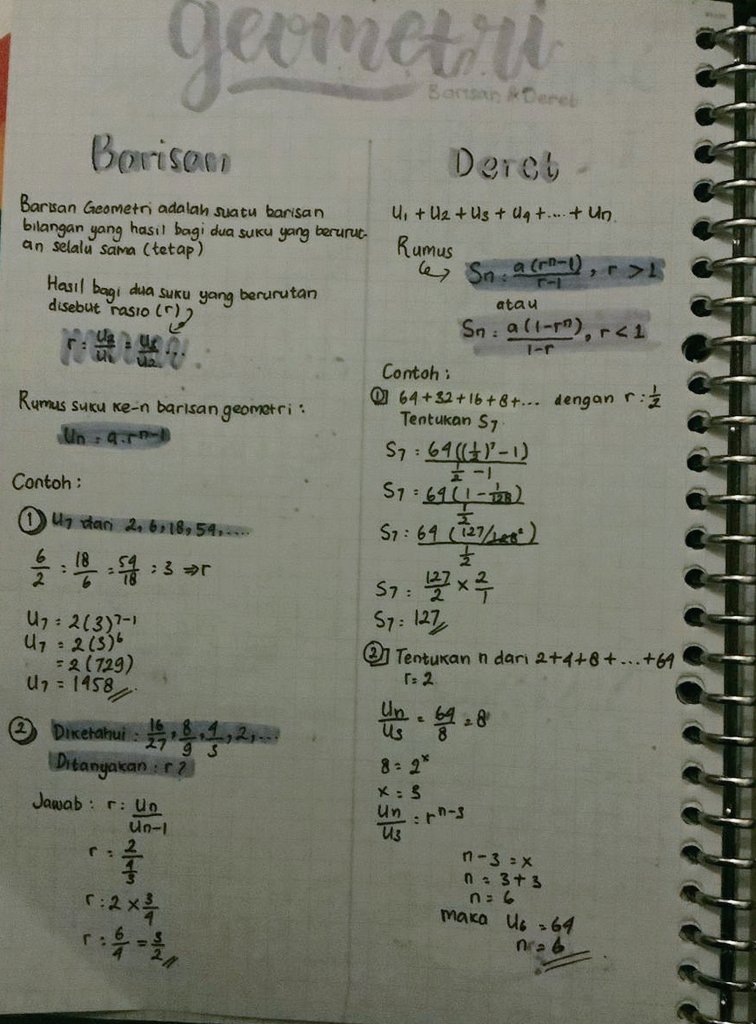 geometri
Barisan & Deret
Barisan
Barisan Geometri adalah suatu barisan
bilangan yang hasil bagi dua suku yang berurut-
an selalu sama (tetap)
Hasil bagi dua suku yang berurutan
disebut rasio (r)
r = U2/U1 = U3/U2 ...
Rumus suku ke-n barisan geometri :
Un = a.r^n-1
Contoh :
① U7 dari 2, 6, 18, 54, ....
6/2 = 18/6 = 54/18 = 3 ⇒ r
U7 = 2(3)^7-1
U7 = 2(3)^6
= 2(729)
U7 = 1458
② Diketahui : 16/27, 8/9, 4/3, 2, ...
Ditanyakan : r ?
Jawab : r = Un/Un-1
r = 2/(4/3)
r = 2 × 3/4
r = 6/4 = 3/2
Deret
U1 + U2 + U3 + U4 + .... + Un
Rumus
Sn = a(r^n-1)/r-1, r > 1
atau
Sn = a(1-r^n)/1-r, r < 1
Contoh :
① 64+32+16+8+... dengan r = 1/2
Tentukan S7
S7 = 64((1/2)^7 - 1)/(1/2 - 1)
S7 = 64(1 - 1/128)/(1/2)
S7 = 64(127/128²)/(1/2)
S7 = 127/2 × 2/1
S7 = 127
② Tentukan n dari 2+4+8+...+64
r = 2
Un/U3 = 64/8 = 8
8 = 2^x
x = 3
Un/U3 = r^n-3
n - 3 = x
n = 3 + 3
n = 6
maka U6 = 64
n = 6